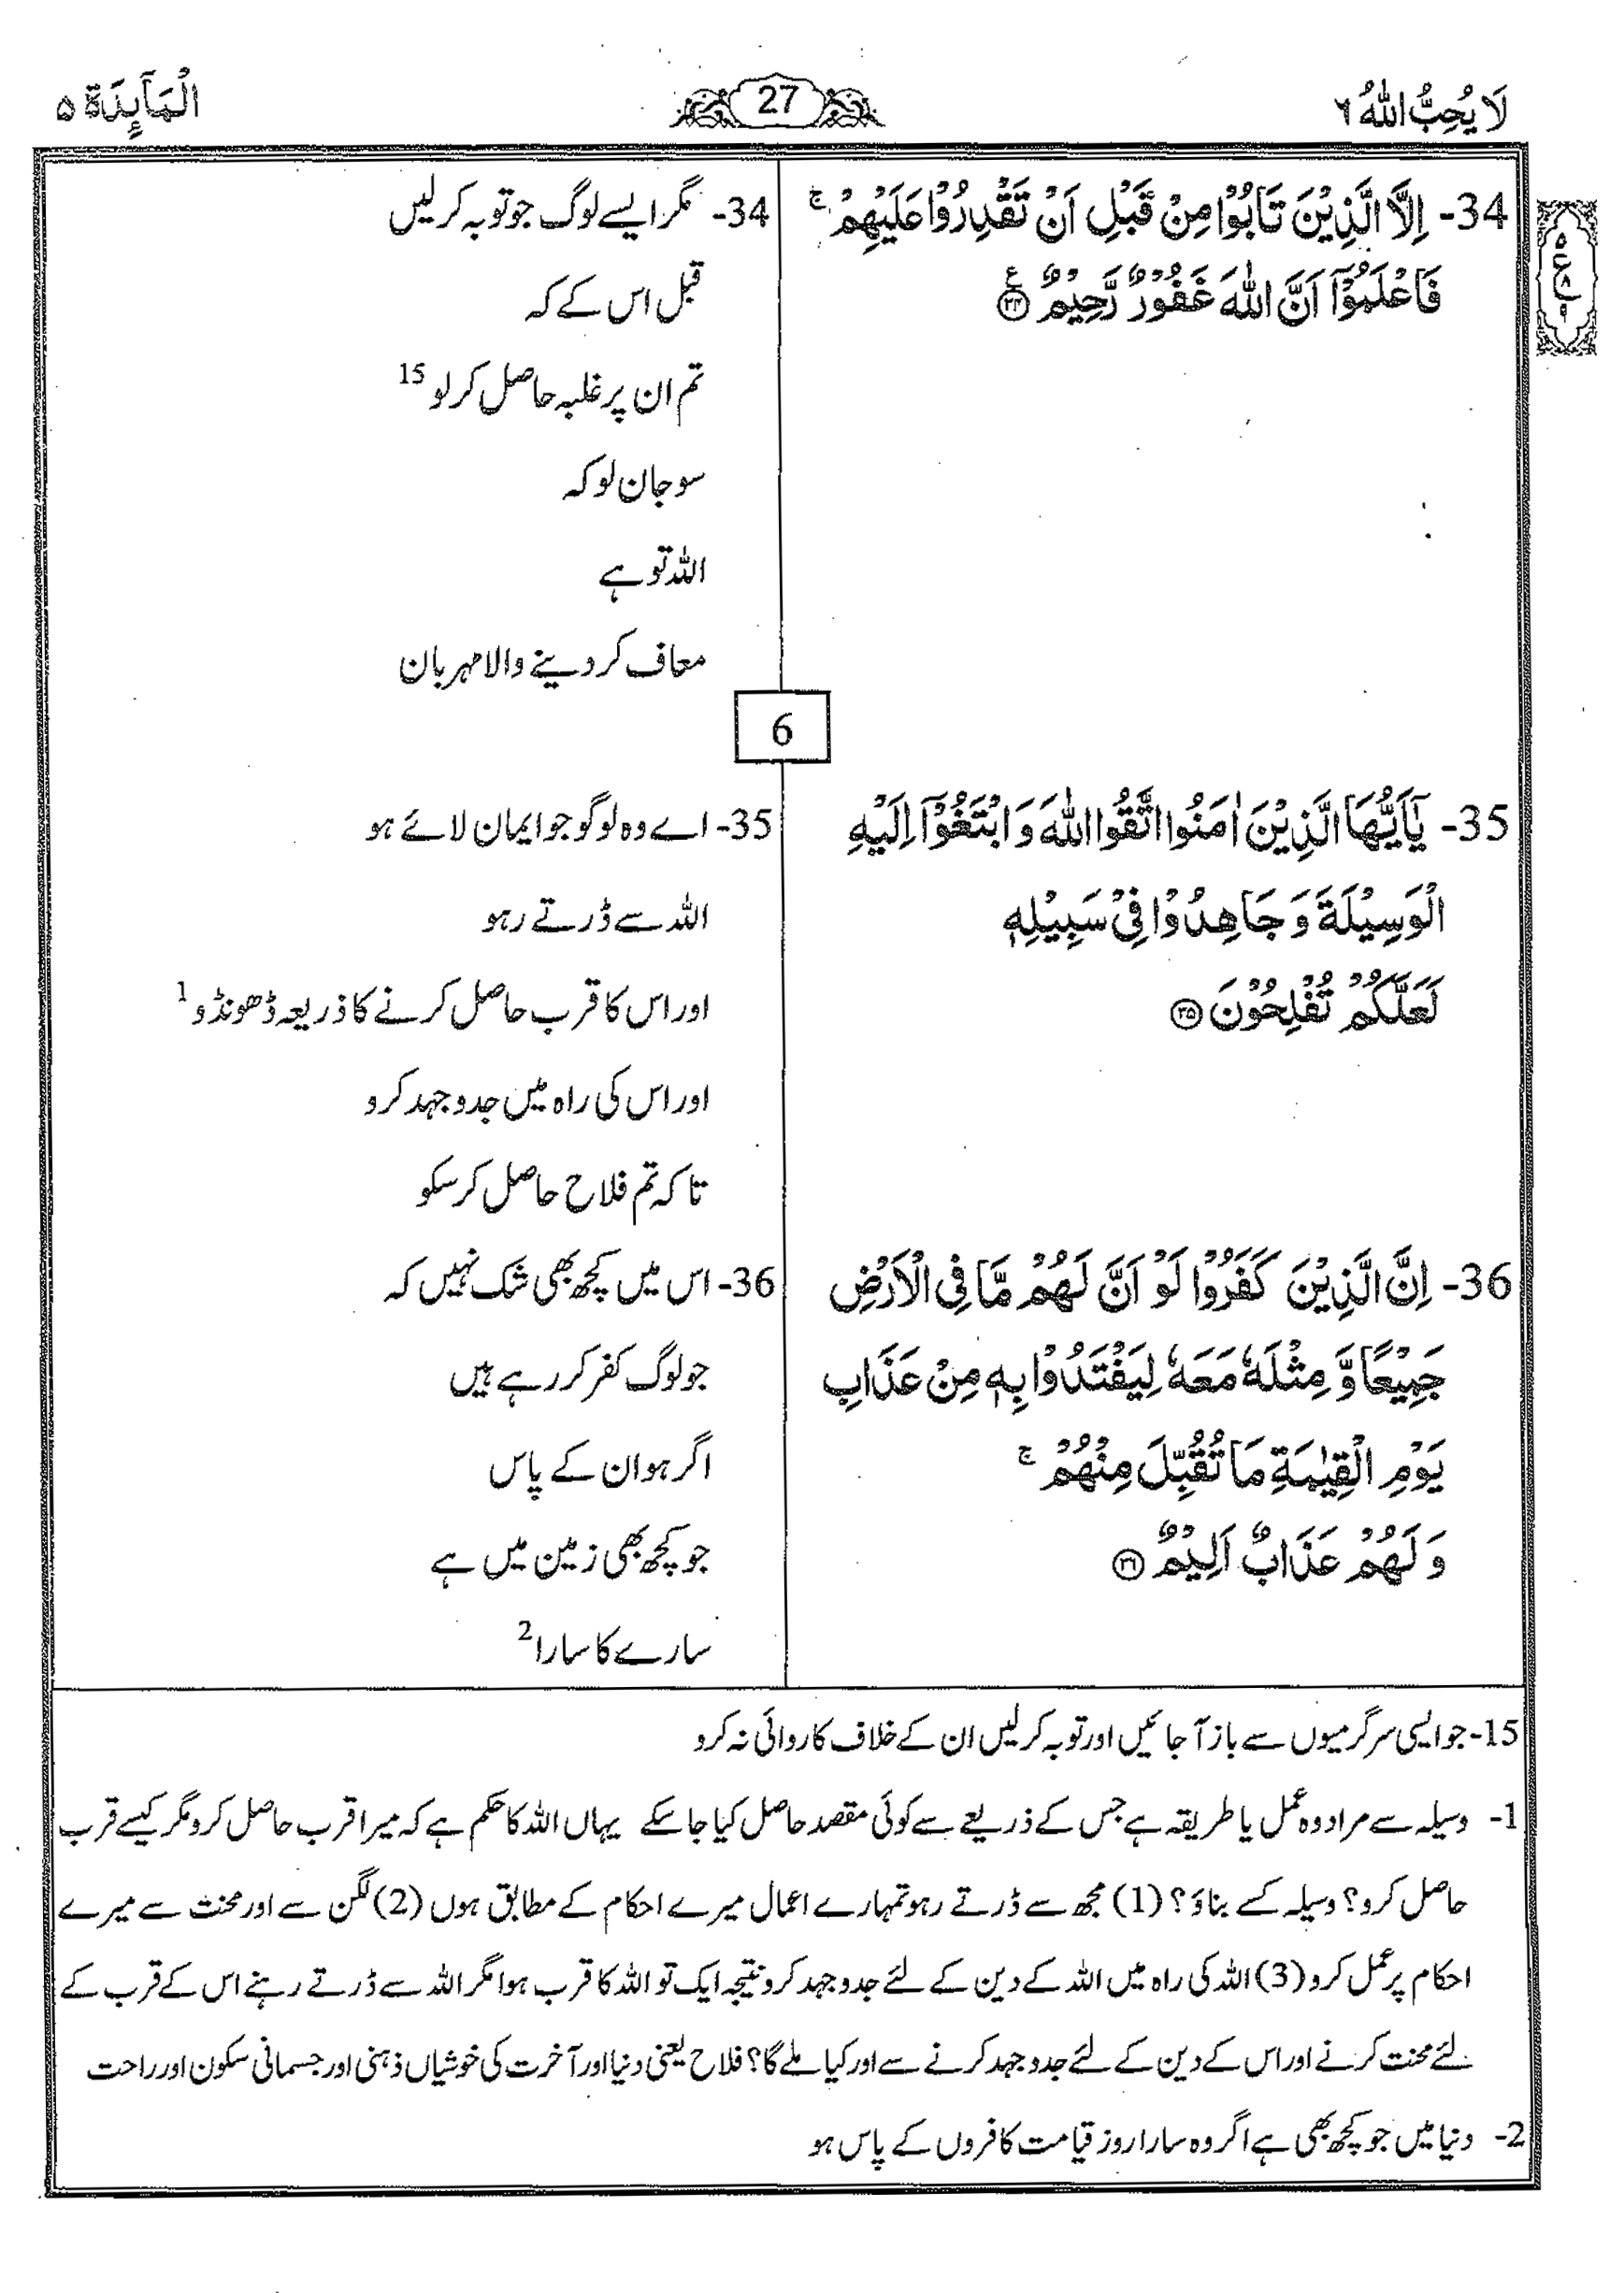 لَا يُحِبُّ اللّٰهُ ٦
27
الْمَآئِدَة ٥
34- اِلَّا الَّذِيْنَ تَابُوْا مِنْ قَبْلِ اَنْ تَقْدِرُوْا عَلَيْهِمْ ۚ
فَاعْلَمُوْٓا اَنَّ اللّٰهَ غَفُوْرٌ رَّحِيْمٌ ﴿۳۴﴾ ع
34- مگر ایسے لوگ جو توبہ کر لیں
قبل اس کے کہ
تم ان پر غلبہ حاصل کر لو 15
سو جان لو کہ
اللہ تو ہے
معاف کر دینے والا مہربان
6
35- يٰٓاَيُّهَا الَّذِيْنَ اٰمَنُوا اتَّقُوا اللّٰهَ وَ ابْتَغُوْٓا اِلَيْهِ
الْوَسِيْلَةَ وَ جَاهِدُوْا فِيْ سَبِيْلِهٖ
لَعَلَّكُمْ تُفْلِحُوْنَ ﴿۳۵﴾
35- اے وہ لوگو جو ایمان لائے ہو
اللہ سے ڈرتے رہو
اور اس کا قرب حاصل کرنے کا ذریعہ ڈھونڈو 1
اور اس کی راہ میں جدوجہد کرو
تاکہ تم فلاح حاصل کر سکو
36- اِنَّ الَّذِيْنَ كَفَرُوْا لَوْ اَنَّ لَهُمْ مَّا فِي الْاَرْضِ
جَمِيْعًا وَّ مِثْلَهٗ مَعَهٗ لِيَفْتَدُوْا بِهٖ مِنْ عَذَابِ
يَوْمِ الْقِيٰمَةِ مَا تُقُبِّلَ مِنْهُمْ ۚ
وَ لَهُمْ عَذَابٌ اَلِيْمٌ ﴿۳۶﴾
36- اس میں کچھ بھی شک نہیں کہ
جو لوگ کفر کر رہے ہیں
اگر ہو ان کے پاس
جو کچھ بھی زمین میں ہے
سارے کا سارا 2
15- جو ایسی سرگرمیوں سے باز آ جائیں اور توبہ کر لیں ان کے خلاف کاروائی نہ کرو
1- وسیلہ سے مراد وہ عمل یا طریقہ ہے جس کے ذریعے سے کوئی مقصد حاصل کیا جا سکے یہاں اللہ کا حکم ہے کہ میرا قرب حاصل کرو مگر کیسے قرب
حاصل کرو؟ وسیلہ کسے بناؤ؟ (1) مجھ سے ڈرتے رہو تمہارے اعمال میرے احکام کے مطابق ہوں (2) لگن سے اور محنت سے میرے
احکام پر عمل کرو (3) اللہ کی راہ میں اللہ کے دین کے لئے جدوجہد کرو نتیجہ ایک تو اللہ کا قرب ہوا مگر اللہ سے ڈرتے رہنے اس کے قرب کے
لئے محنت کرنے اور اس کے دین کے لئے جدوجہد کرنے سے اور کیا ملے گا؟ فلاح یعنی دنیا اور آخرت کی خوشیاں ذہنی اور جسمانی سکون اور راحت
2- دنیا میں جو کچھ بھی ہے اگر وہ سارا روز قیامت کافروں کے پاس ہو